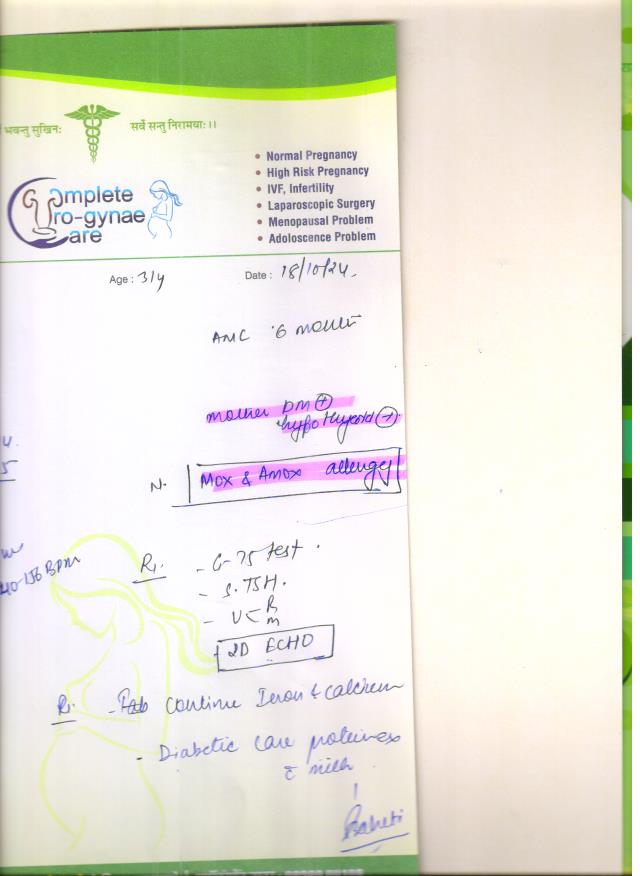 भवन्तु सुखिनः सर्वे सन्तु निरामयाः।।
Complete
Uro-gynae
Care
• Normal Pregnancy
• High Risk Pregnancy
• IVF, Infertility
• Laparoscopic Surgery
• Menopausal Problem
• Adoloscence Problem
Age : 31y Date : 18/10/24.
AMC 6 month
mother DM (+)
hypothyroid
N. Mox & Amox allergy
40-156 BPM
- G-75 test.
- S.TSH.
- U< R
M
2D ECHO
- Tab continue Iron & calcium
- Diabetic care
milk
Baheti